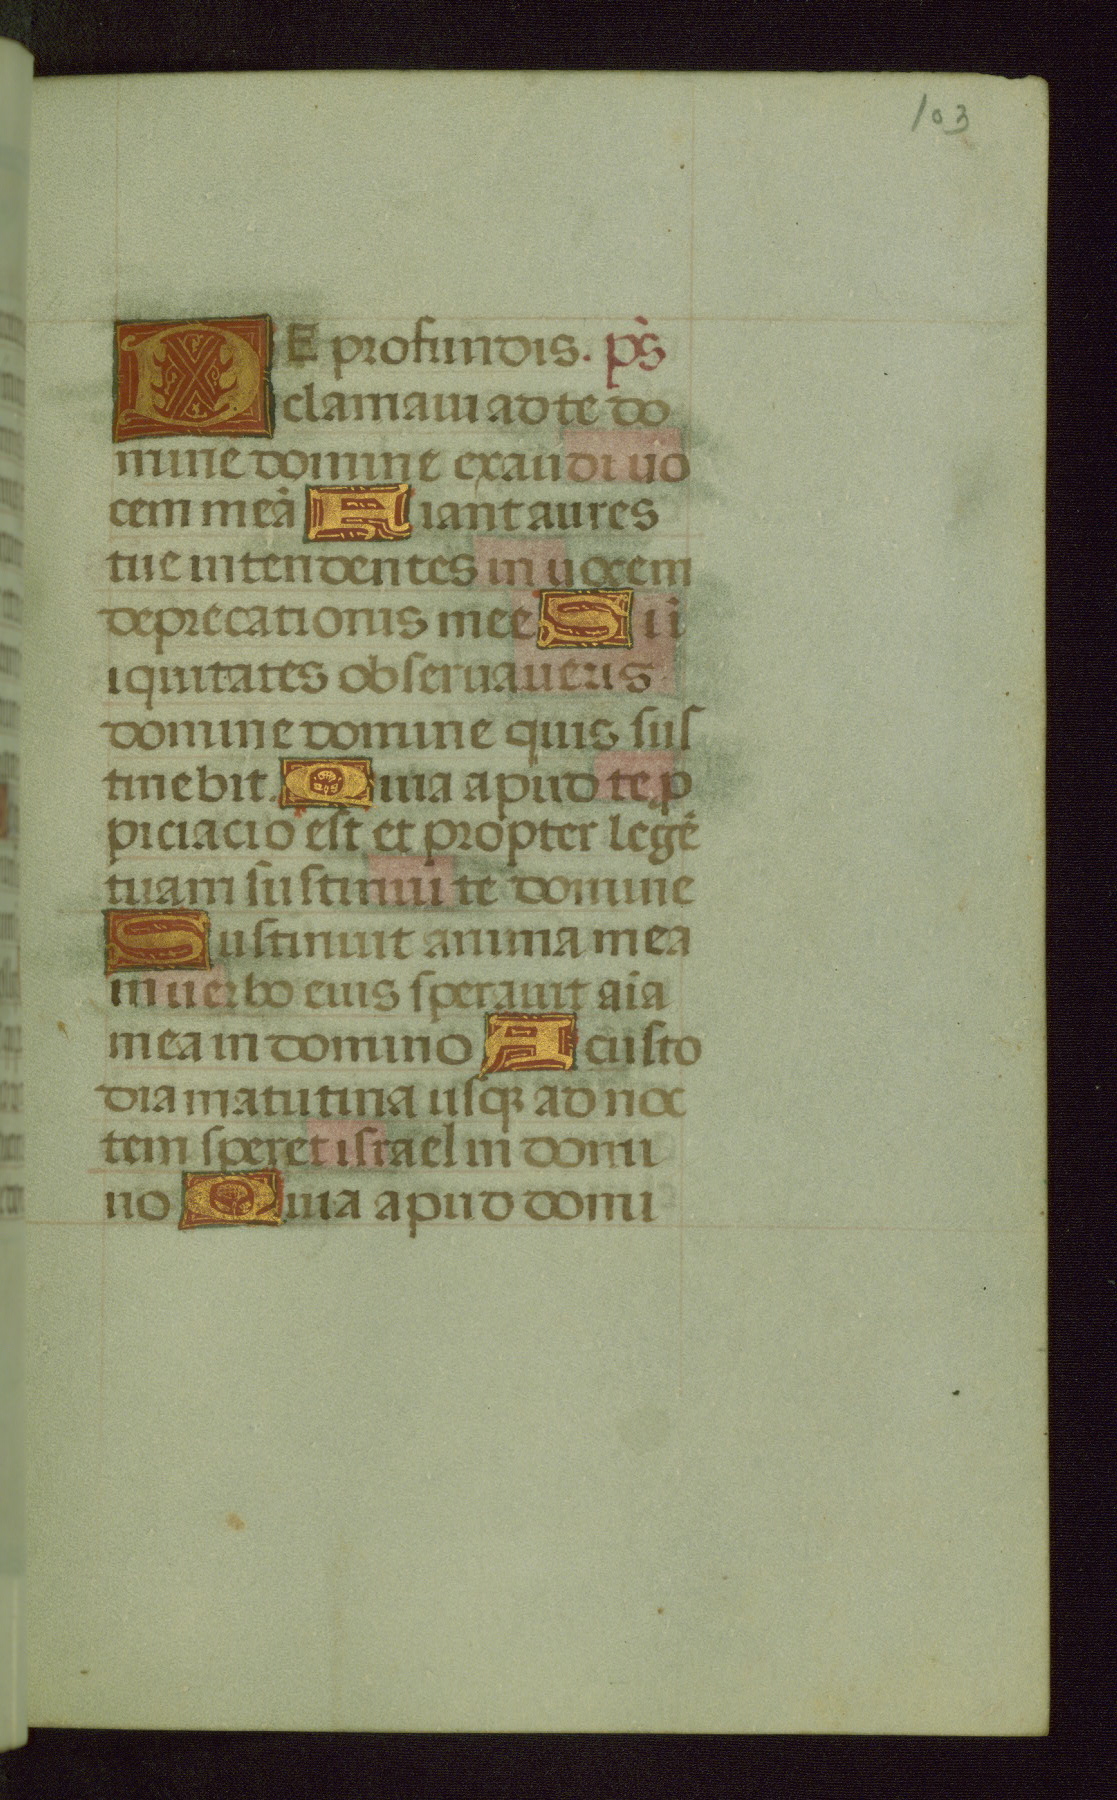 103
DE profundis. ps̄
clamaui ad te do
mine domine exaudi uo
cem meā Fiant aures
tue intendentes in uocem
deprecationis mee Si ī
iquitates obseruaueris
domine domine quis sus
tinebit. Quia apud te p
piciacio est et propter legē
tuam sustinui te domine
Sustinuit anima mea
in uerbo eius sperauit aīa
mea in domino A custo
dia matutina usqꝫ ad noc
tem speret israel in domi
no Quia apud domi